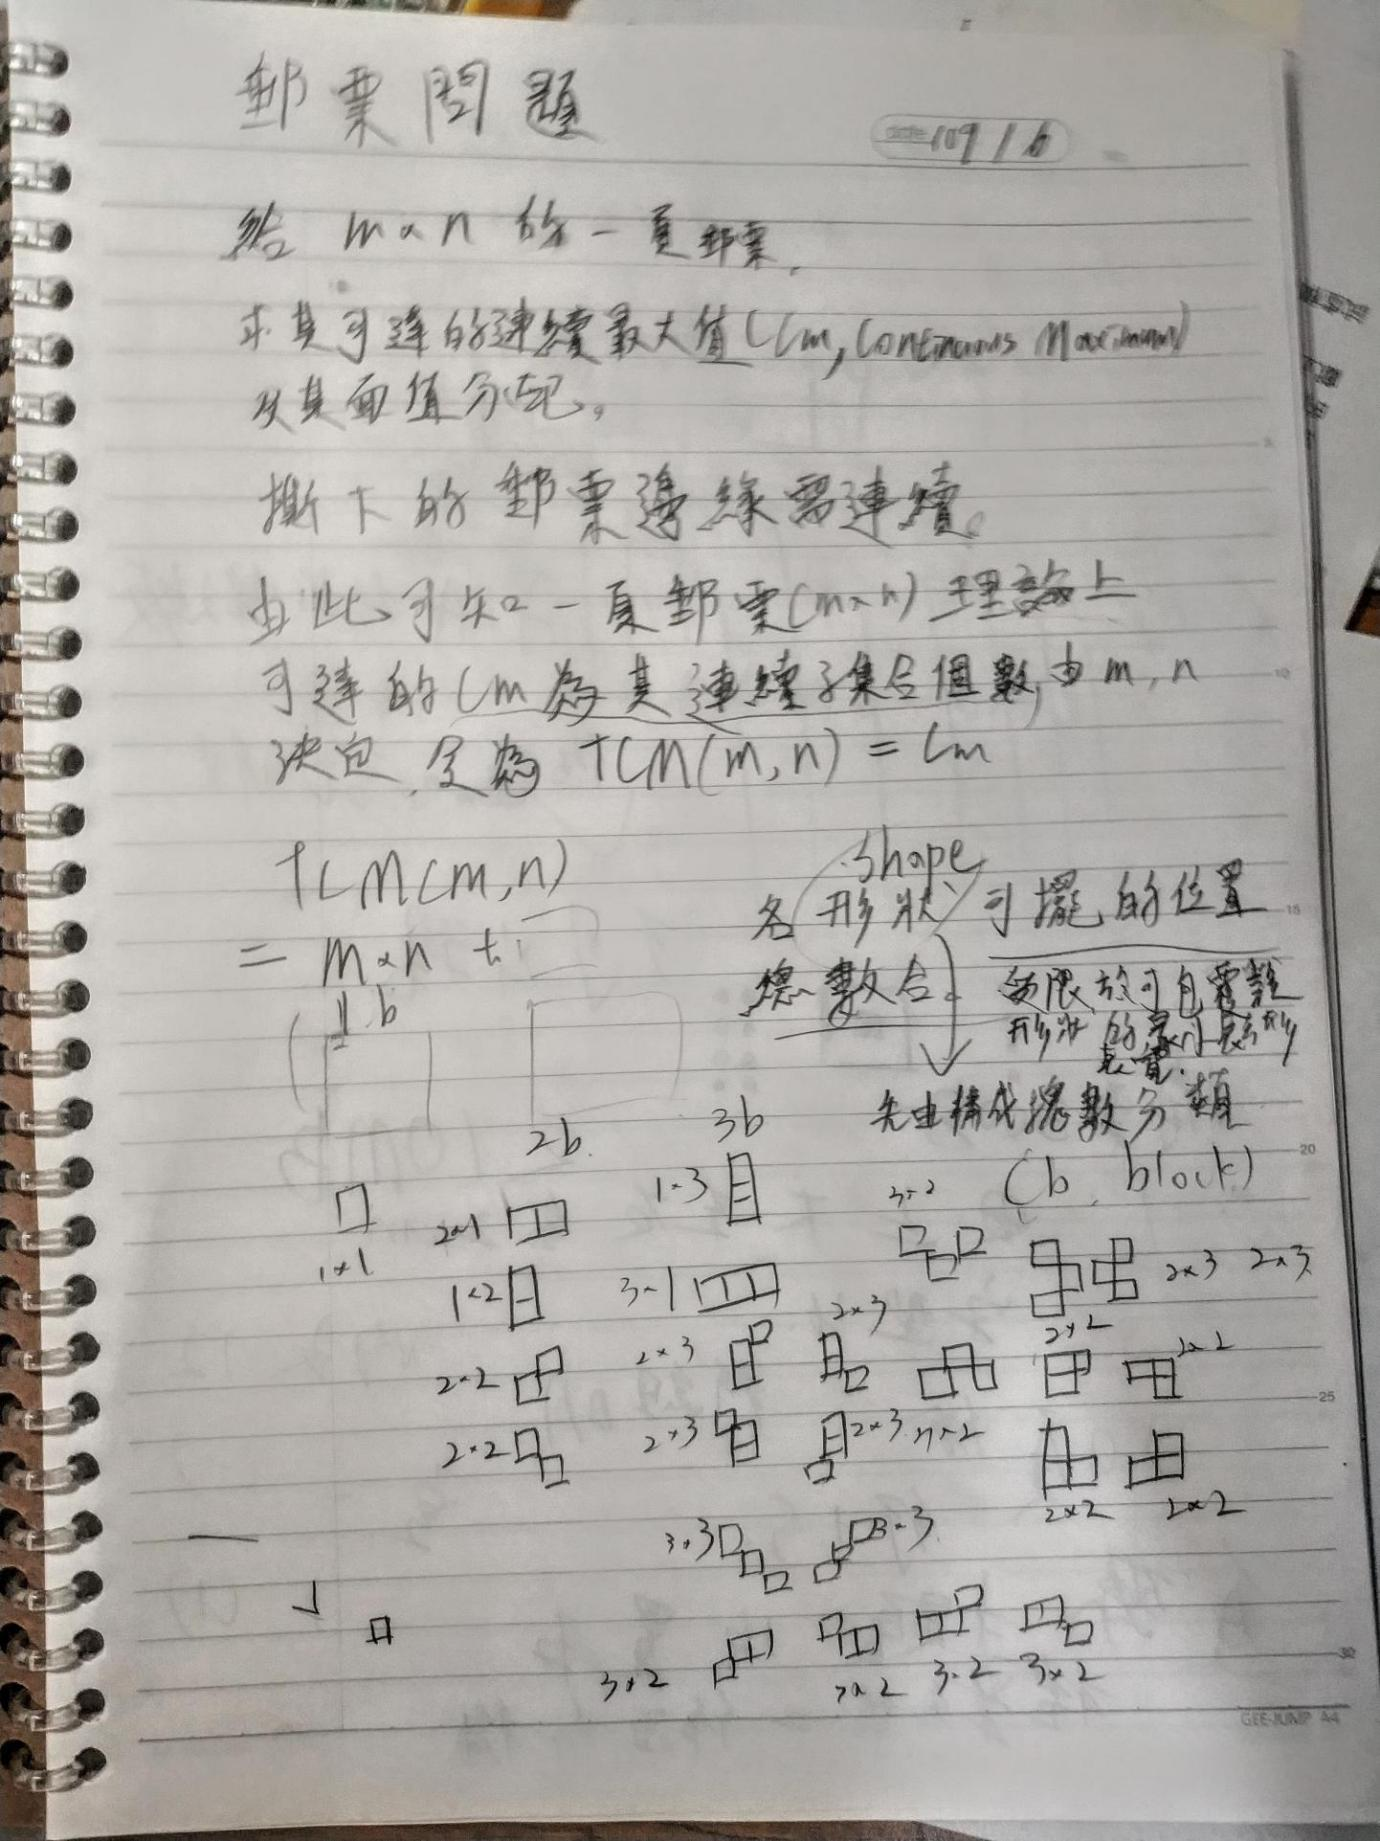 郵票問題
109/6
給 m×n 的一頁郵票,
求其可達的連續最大值(Cm, Continuous Maximum)
及其面值分配。
撕下的郵票邊緣需連續。
由此可知一頁郵票(m×n)理論上
可達的Cm為其連續子集合個數,由m,n
決定,定為 TCM(m,n) = Cm
TCM(m,n)
= m×n +
1b
shape
各形狀可擺的位置
總數合。
受限於可包覆該
形狀的最小矩形
先由構成塊數分類
(b, block)
2b.
3b
1×1
2×1
1×2
2×2
2×2
1×3
3×1
2×3
2×3
2×3
2×3
3×2
2×3 2×3
2×2
2×2
2×2
2×2
3×3
3×3
3×2
3×2
3×2
3×2
GEE-JUMP A4
15
20
25
30